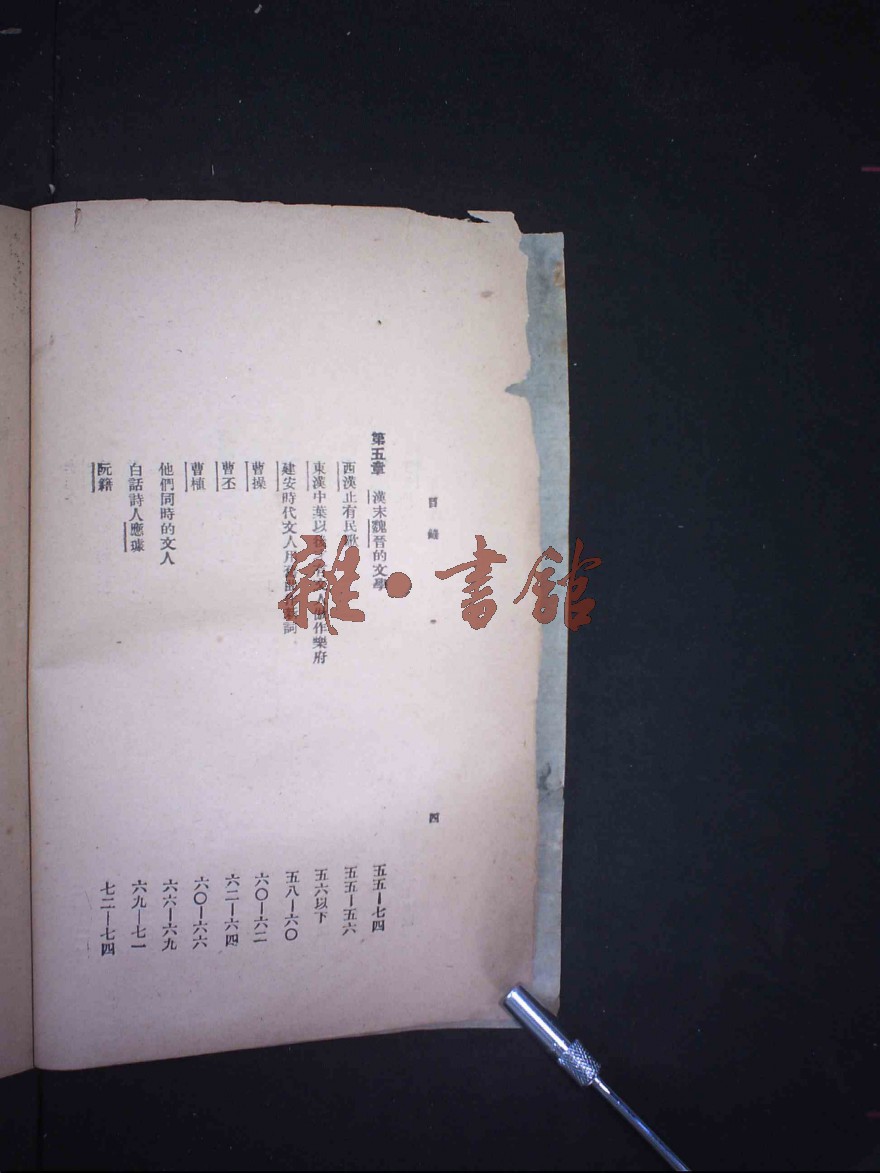 目錄
四
第五章 漢末魏晉的文學 五五—七四
西漢止有民歌 五五—五六
東漢中葉以後 作樂府 五六以下
建安時代文人 詞 五八—六〇
曹操 六〇—六二
曹丕 六二—六四
曹植 六〇—六六
他們同時的文人 六六—六九
白話詩人應璩 六九—七一
阮籍 七二—七四
雜·書館